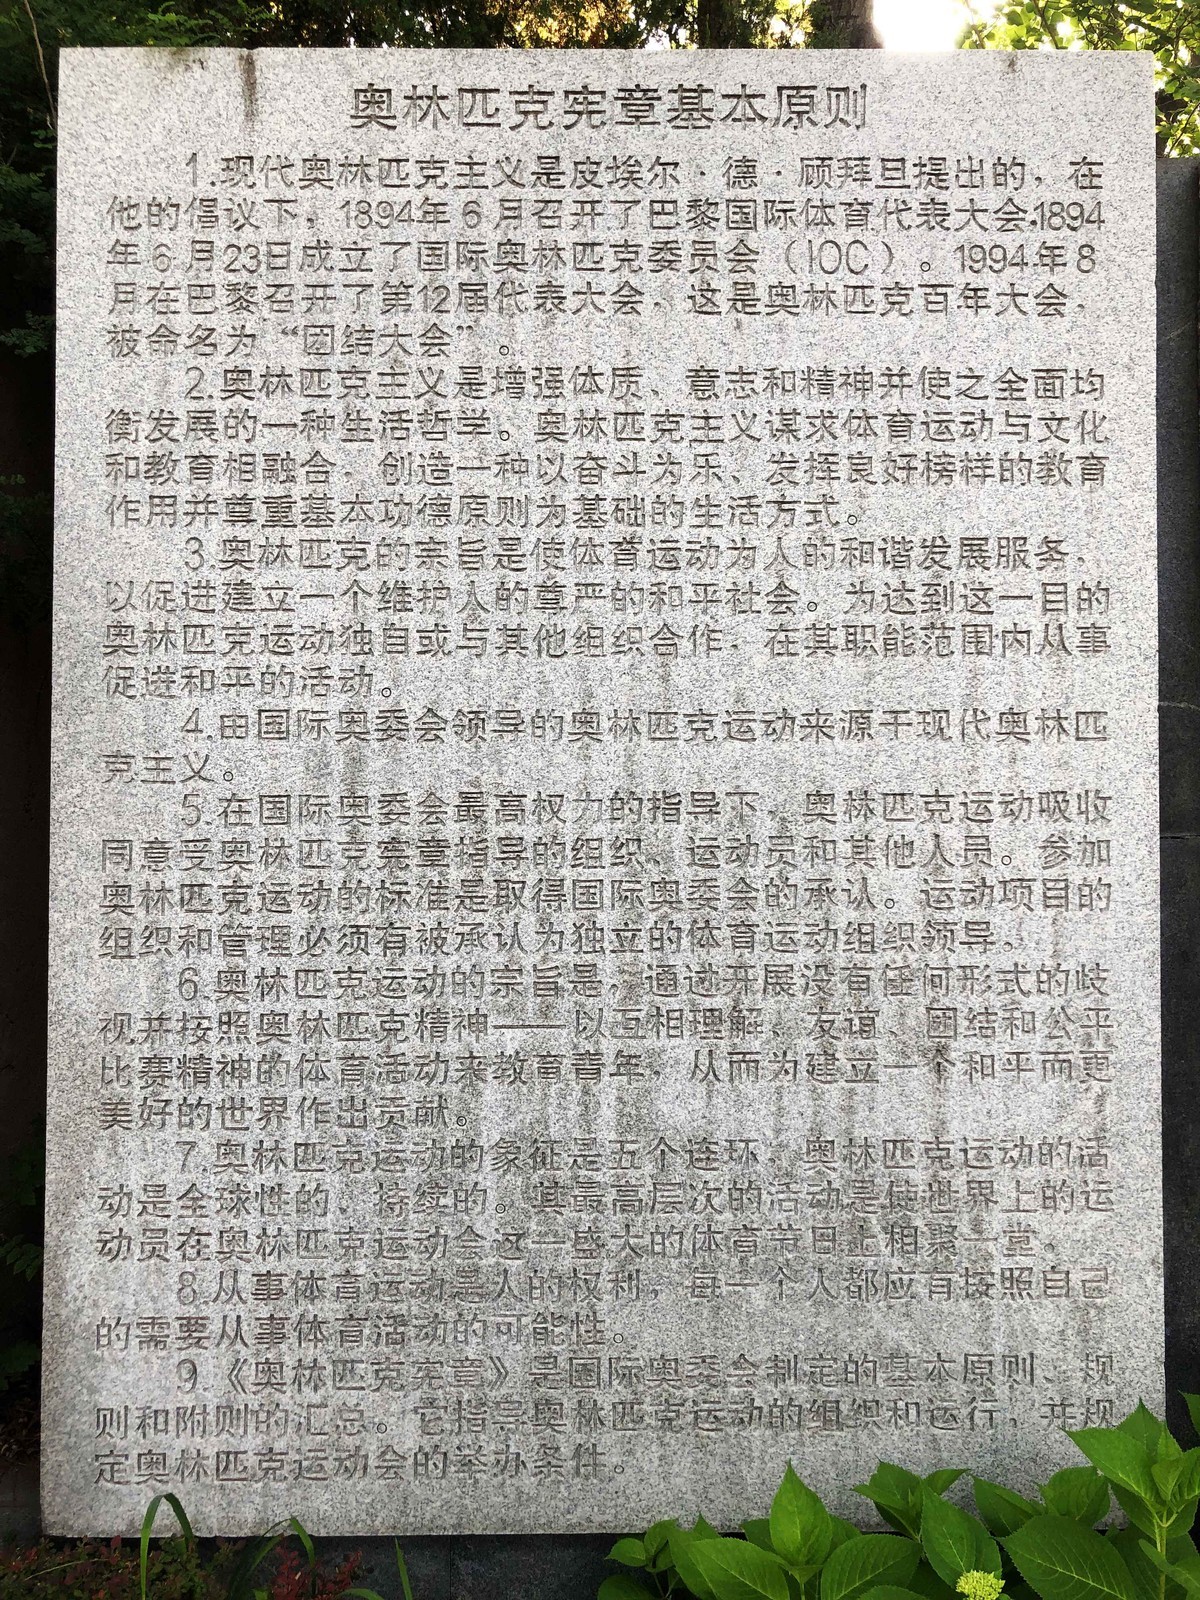 奥林匹克宪章基本原则
1.现代奥林匹克主义是皮埃尔·德·顾拜旦提出的，在
他的倡议下，1894年6月召开了巴黎国际体育代表大会.1894
年6月23日成立了国际奥林匹克委员会（IOC）。1994年8
月在巴黎召开了第12届代表大会，这是奥林匹克百年大会，
被命名为“团结大会”。
2.奥林匹克主义是增强体质、意志和精神并使之全面均
衡发展的一种生活哲学。奥林匹克主义谋求体育运动与文化
和教育相融合，创造一种以奋斗为乐、发挥良好榜样的教育
作用并尊重基本功德原则为基础的生活方式。
3.奥林匹克的宗旨是使体育运动为人的和谐发展服务，
以促进建立一个维护人的尊严的和平社会。为达到这一目的
奥林匹克运动独自或与其他组织合作，在其职能范围内从事
促进和平的活动。
4.由国际奥委会领导的奥林匹克运动来源于现代奥林匹
克主义。
5.在国际奥委会最高权力的指导下，奥林匹克运动吸收
同意受奥林匹克宪章指导的组织、运动员和其他人员。参加
奥林匹克运动的标准是取得国际奥委会的承认。运动项目的
组织和管理必须有被承认为独立的体育运动组织领导。
6.奥林匹克运动的宗旨是，通过开展没有任何形式的歧
视并按照奥林匹克精神——以互相理解、友谊、团结和公平
比赛精神的体育活动来教育青年，从而为建立一个和平而更
美好的世界作出贡献。
7.奥林匹克运动的象征是五个连环，奥林匹克运动的活
动是全球性的、持续的。其最高层次的活动是使世界上的运
动员在奥林匹克运动会这一盛大的体育节日上相聚一堂。
8.从事体育运动是人的权利，每一个人都应有按照自己
的需要从事体育活动的可能性。
9.《奥林匹克宪章》是国际奥委会制定的基本原则、规
则和附则的汇总。它指导奥林匹克运动的组织和运行，并规
定奥林匹克运动会的举办条件。